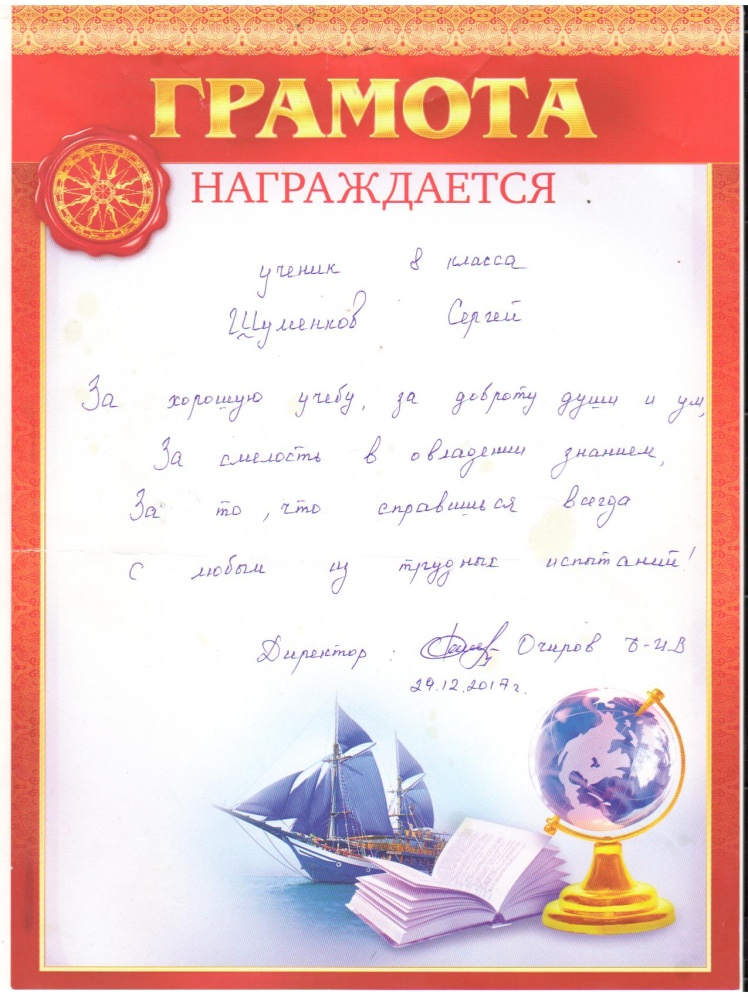 ГРАМОТА
НАГРАЖДАЕТСЯ
ученик 8 класса
Шуменков Сергей
За хорошую учебу, за доброту души и ум,
За смелость в овладении знанием,
За то, что справишься всегда
с любым из трудных испытаний!
Директор: Очиров Б-Ц.В
29.12.2017г.